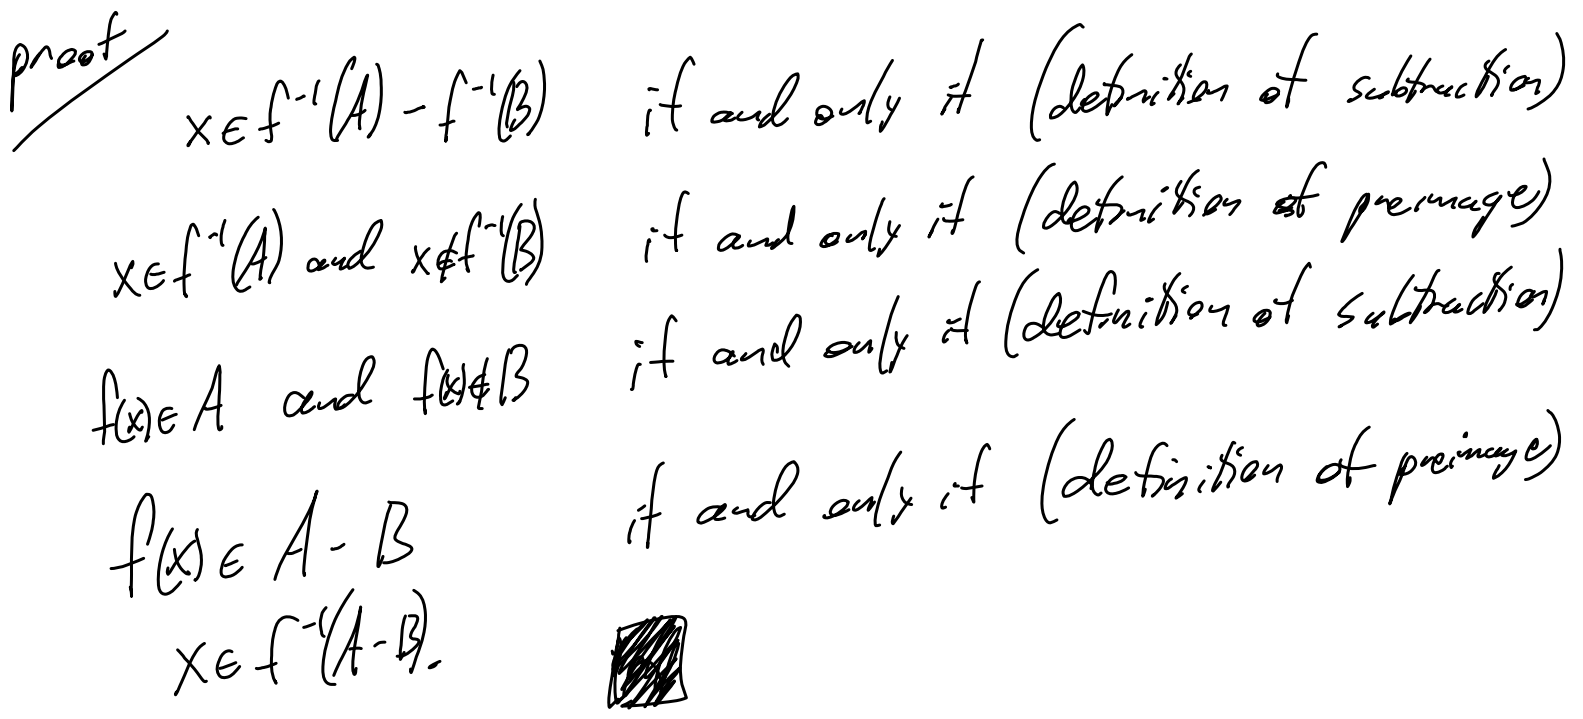 proof
x ∈ f⁻¹(A) - f⁻¹(B) if and only if (definition of subtraction)
x ∈ f⁻¹(A) and x ∉ f⁻¹(B) if and only if (definition of preimage)
f(x) ∈ A and f(x) ∉ B if and only if (definition of subtraction)
f(x) ∈ A - B if and only if (definition of preimage)
x ∈ f⁻¹(A - B).